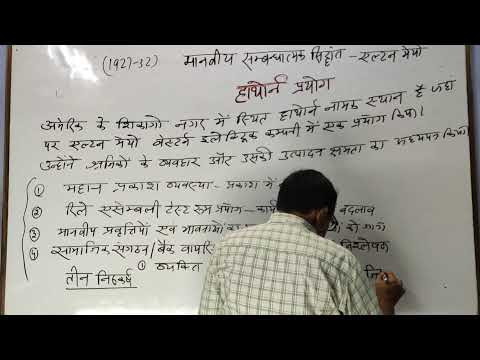 (1927-32) मानवीय सम्बन्धात्मक सिद्धांत - एल्टन मेयो
हाथोर्न प्रयोग
अमेरिका के शिकागो नगर में स्थित हाथोर्न नामक स्थान है जहां
पर एल्टन मेयो वेस्टर्न इलेक्ट्रिक कम्पनी में एक प्रयोग किया।
उन्होंने श्रमिकों के व्यवहार और उसकी उत्पादन क्षमता का अध्ययन किया
① महान प्रकाश व्यवस्था - प्रकाश में
② रिले एसेम्बली टेस्ट रूम प्रयोग - बदलाव
③ मानवीय प्रवृत्तियों एवं भावनाओं का
④ सामाजिक संगठन / बैंक वायरिंग विश्लेषण
तीन निष्कर्ष ① व्यक्ति